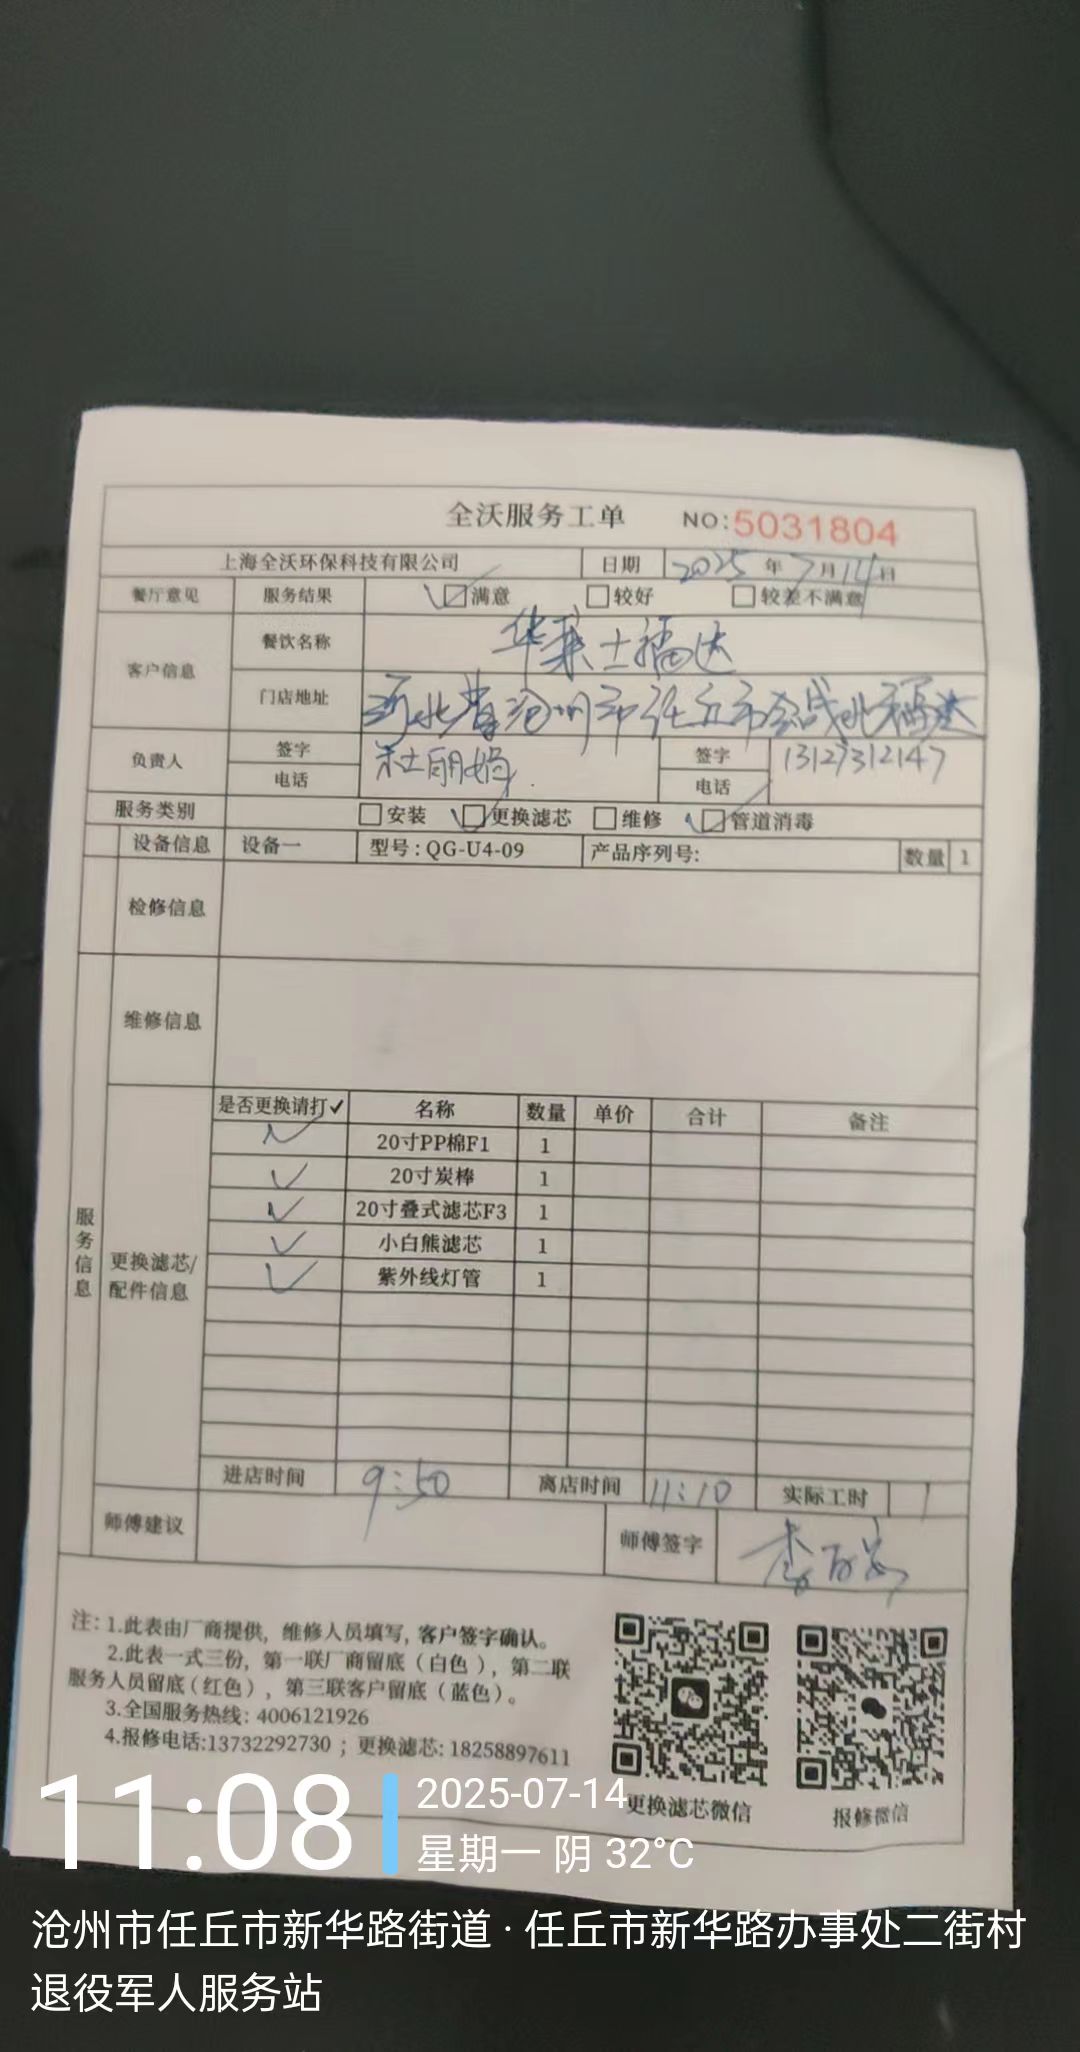 全沃服务工单 NO:5031804
上海全沃环保科技有限公司 日期 2025年7月14日
餐厅意见 服务结果 满意 较好 较差不满意
客户信息 餐饮名称 华莱士福达
门店地址 河北省沧州市任丘市会战北福达
负责人 签字 杜丽娟 签字 13127312147
电话 电话
服务类别 安装 更换滤芯 维修 管道消毒
设备信息 设备一 型号:QG-U4-09 产品序列号: 数量 1
检修信息
维修信息
服务信息
更换滤芯/
配件信息
是否更换请打✓ 名称 数量 单价 合计 备注
✓ 20寸PP棉F1 1
✓ 20寸炭棒 1
✓ 20寸叠式滤芯F3 1
✓ 小白熊滤芯 1
✓ 紫外线灯管 1
进店时间 9:50 离店时间 11:10 实际工时 1
师傅建议 师傅签字 李
注: 1.此表由厂商提供, 维修人员填写, 客户签字确认。
2.此表一式三份, 第一联厂商留底(白色), 第二联
服务人员留底(红色), 第三联客户留底(蓝色)。
3.全国服务热线: 4006121926
4.报修电话:13732292730 ; 更换滤芯: 18258897611
更换滤芯微信 报修微信
11:08 2025-07-14
星期一 阴 32°C
沧州市任丘市新华路街道 · 任丘市新华路办事处二街村
退役军人服务站